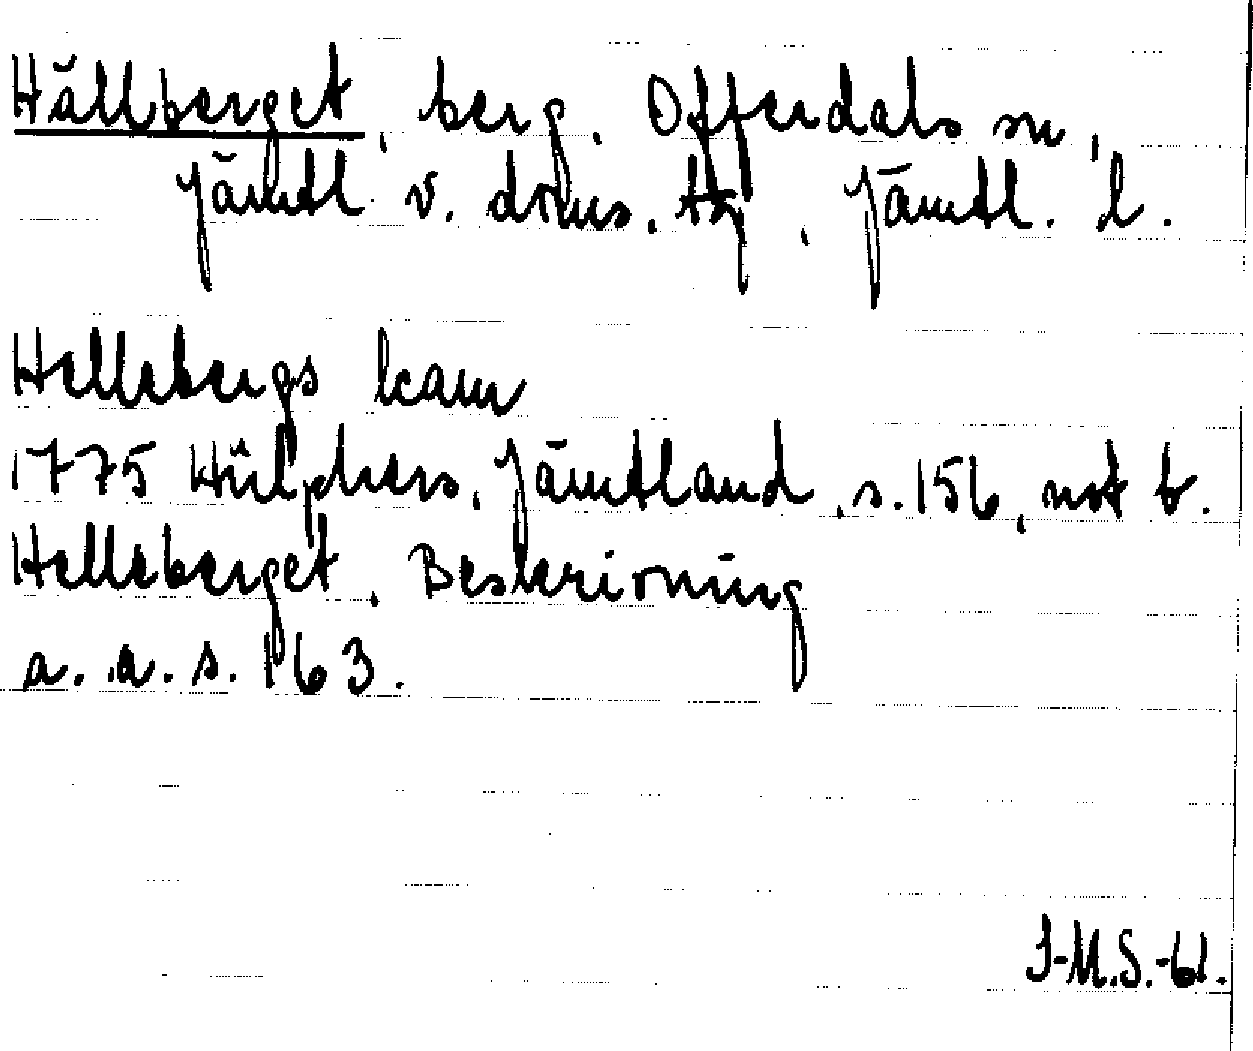 Hällberget, berg, Offerdals sn,
Jämtl. v. doms. tg, Jämtl. l.
Hellebergs kam
1775 Hülphers, Jämtland, s. 156, not b.
Helleberget. Beskrivning
a. a. s. 163.
I-M.S.-61.